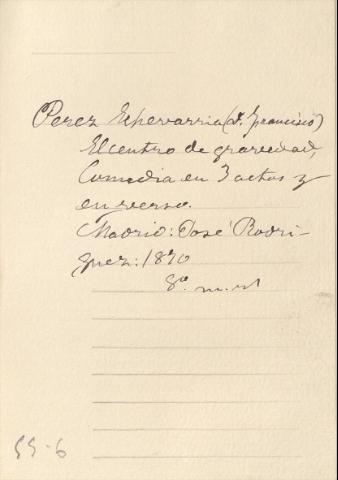 Perez Echevarria (D. Francisco)
El centro de gravedad,
Comedia en 3 actos y
en verso.
Madrid: José Rodri-
guez: 1870
8º m. rl
55-6